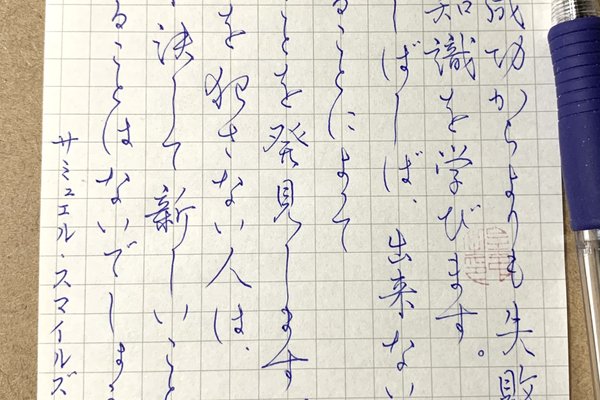 成功からよりも失敗
知識を学びます。
しばしば、出来ない
ることによって
ことを発見します
を犯さない人は、
決して新しいこと
ることはないでしょ
サミュエル・スマイルズ